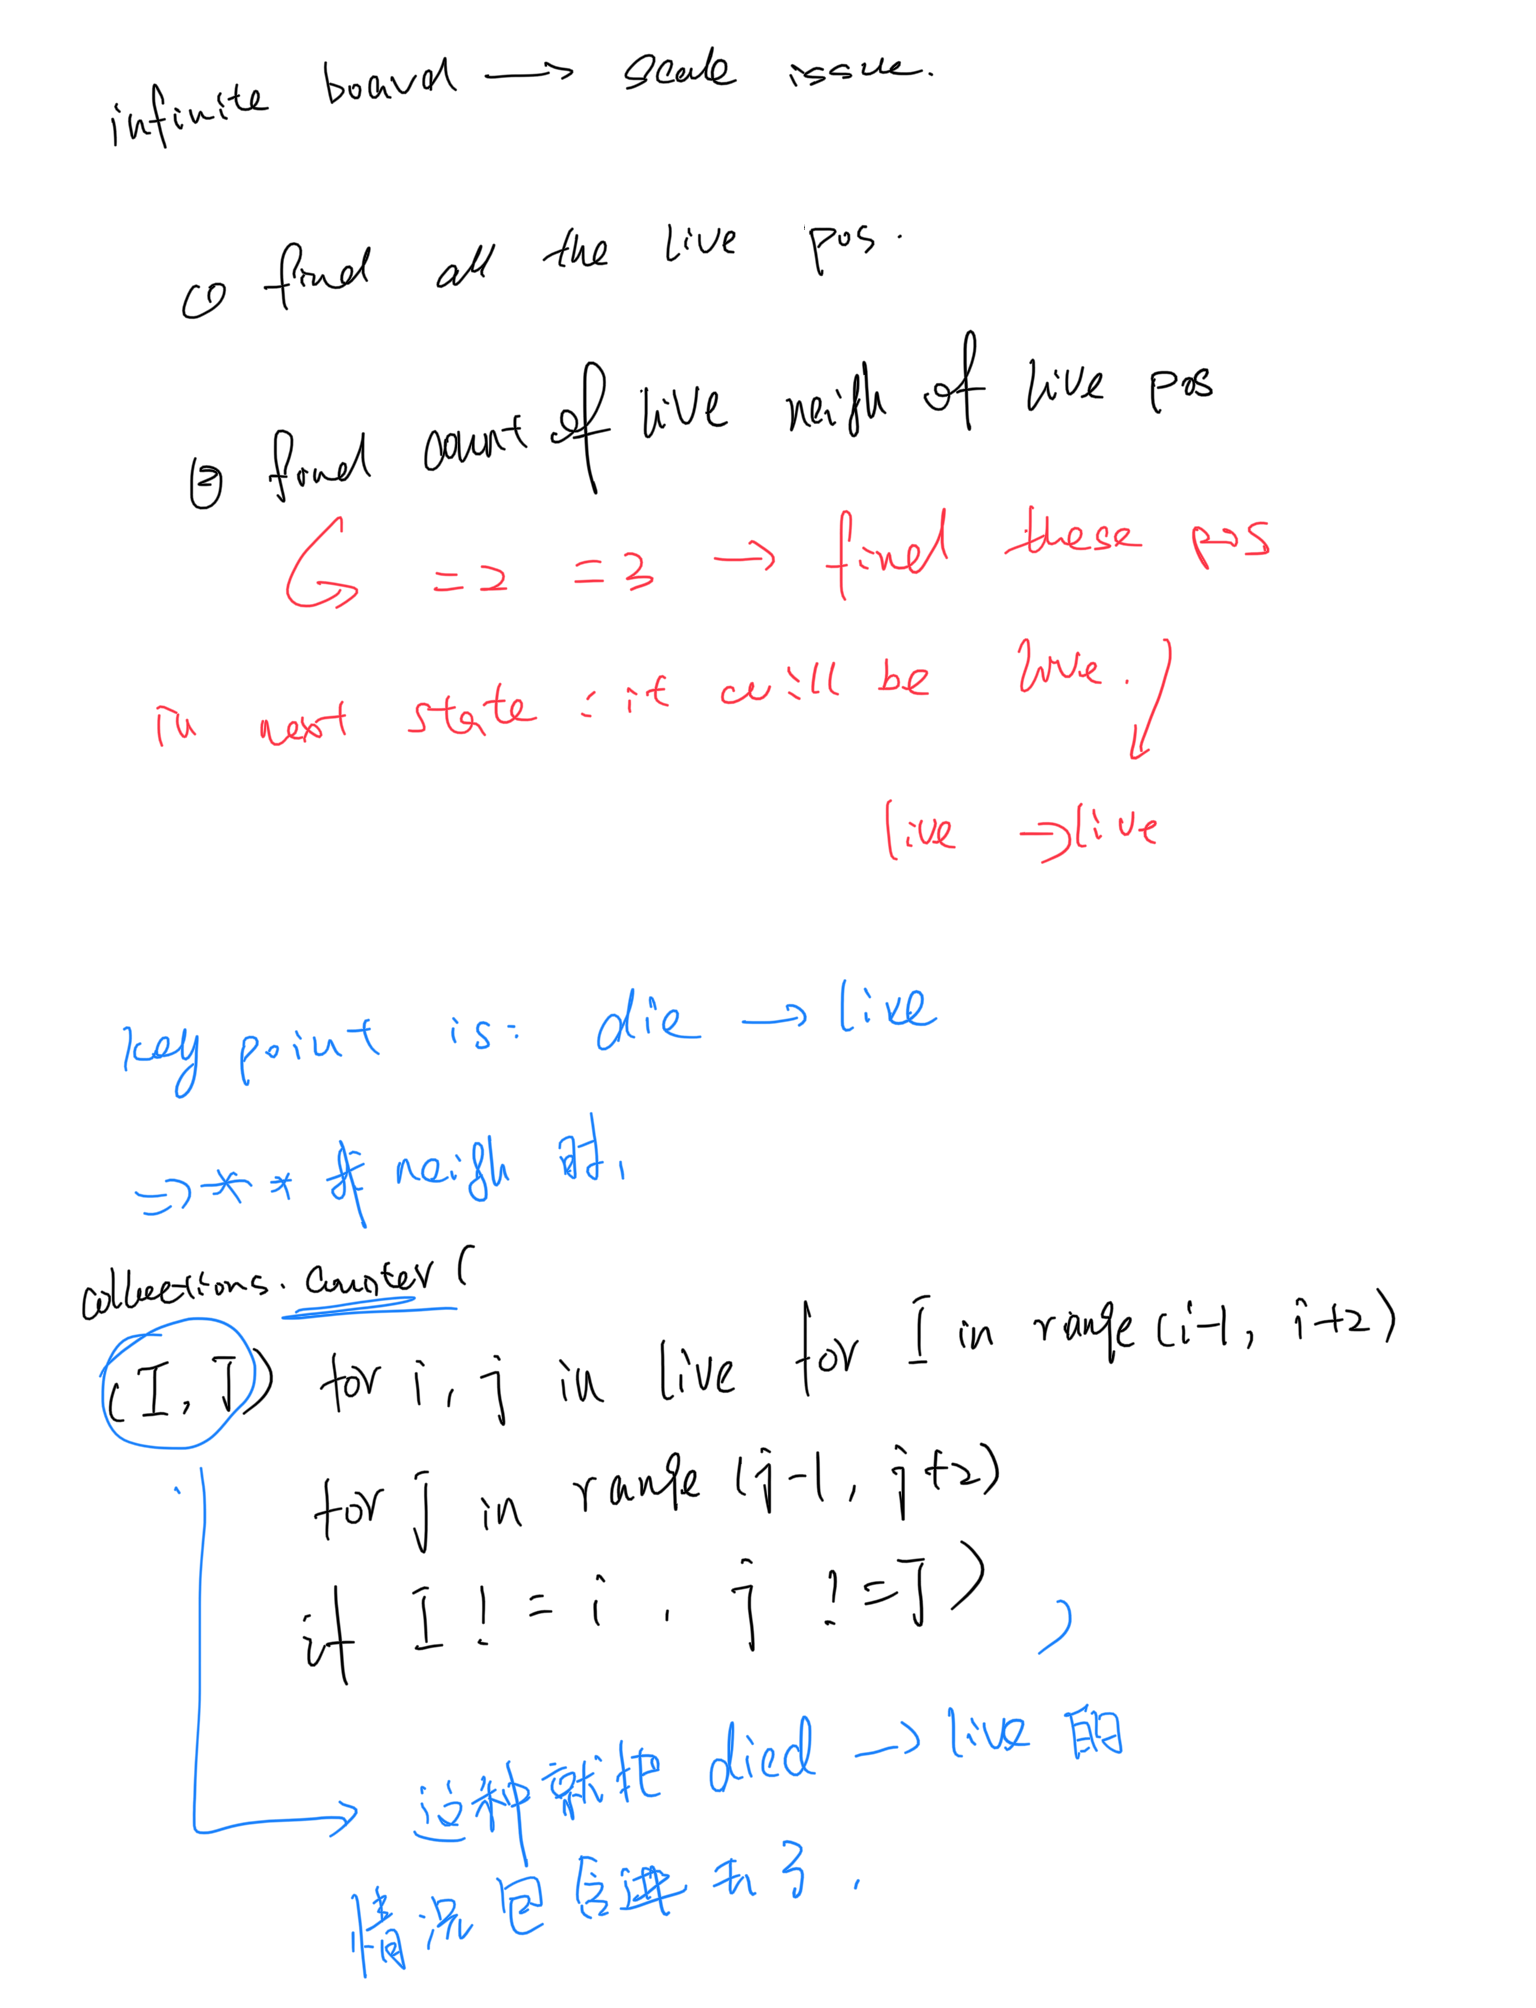 infinite board → scale issue.
① find all the live pos.
② find count of live neigh of live pos
=2 =3 → find these pos
in next state : it will be live.
live → live
key point is: die → live
⇒ * * 求 neigh 时,
collections. Counter (
(I, J) for i, j in live for I in range (i-1, i+2)
for J in range (j-1, j+2)
if I != i , j != J )
这种就把 died → live 的
情况包含进去了.